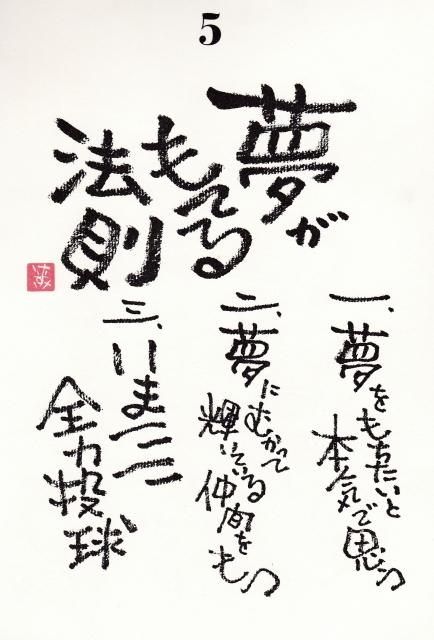 5
夢が
もてる
法則
一、夢をもちたいと
本気で思う
二、夢にむかって
輝いている
仲間をもつ
三、いまここに
全力投球